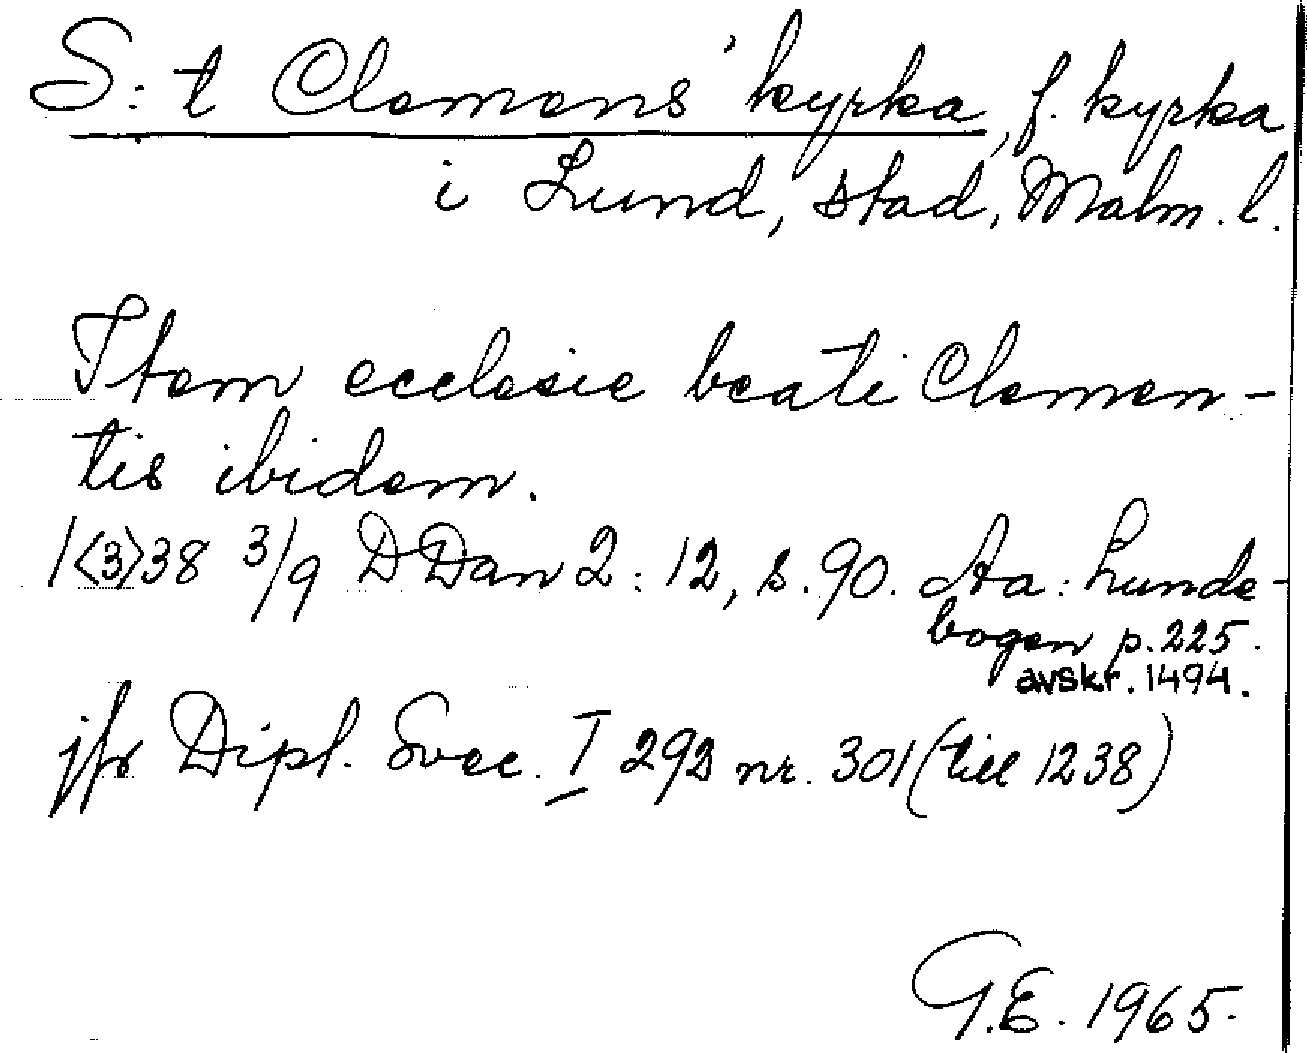 S:t Clemens' kyrka, f. kyrka
i Lund, stad, Malm. l.
Item ecclesie beati Clemen-
tis ibidem.
1<3>38 3/9 DDan 2:12, s. 90. Aa: Lunde-
bogen p. 225.
avskr. 1494.
jfr Dipl. Svec. I 293 nr. 301 (till 1238)
G.E. 1965.